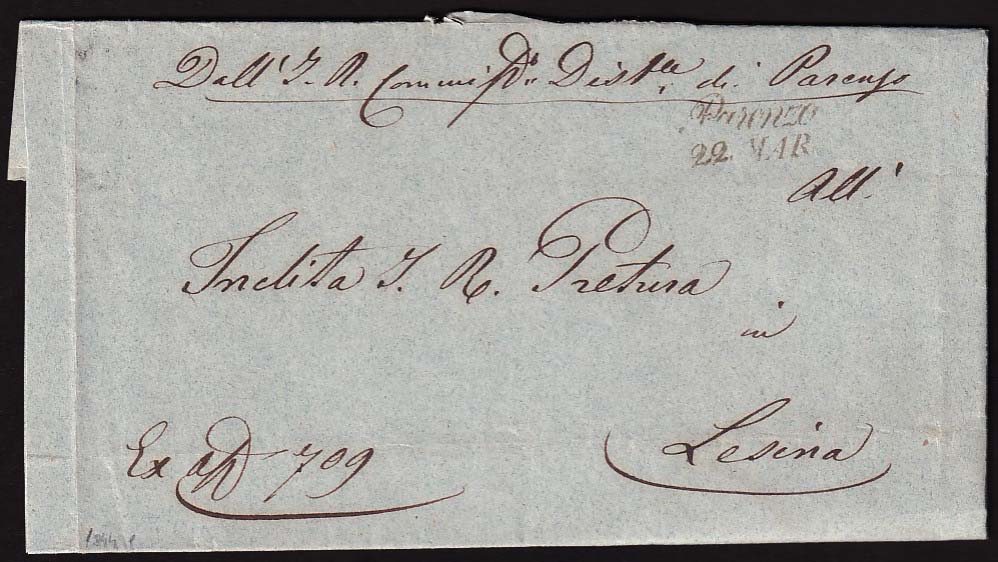 Dall' I. R. Commiss.to Dist.le di Parenzo
Parenzo
22. MAR
All'
Inclita I. R. Pretura
in
Lesina
Ex off 709
1844